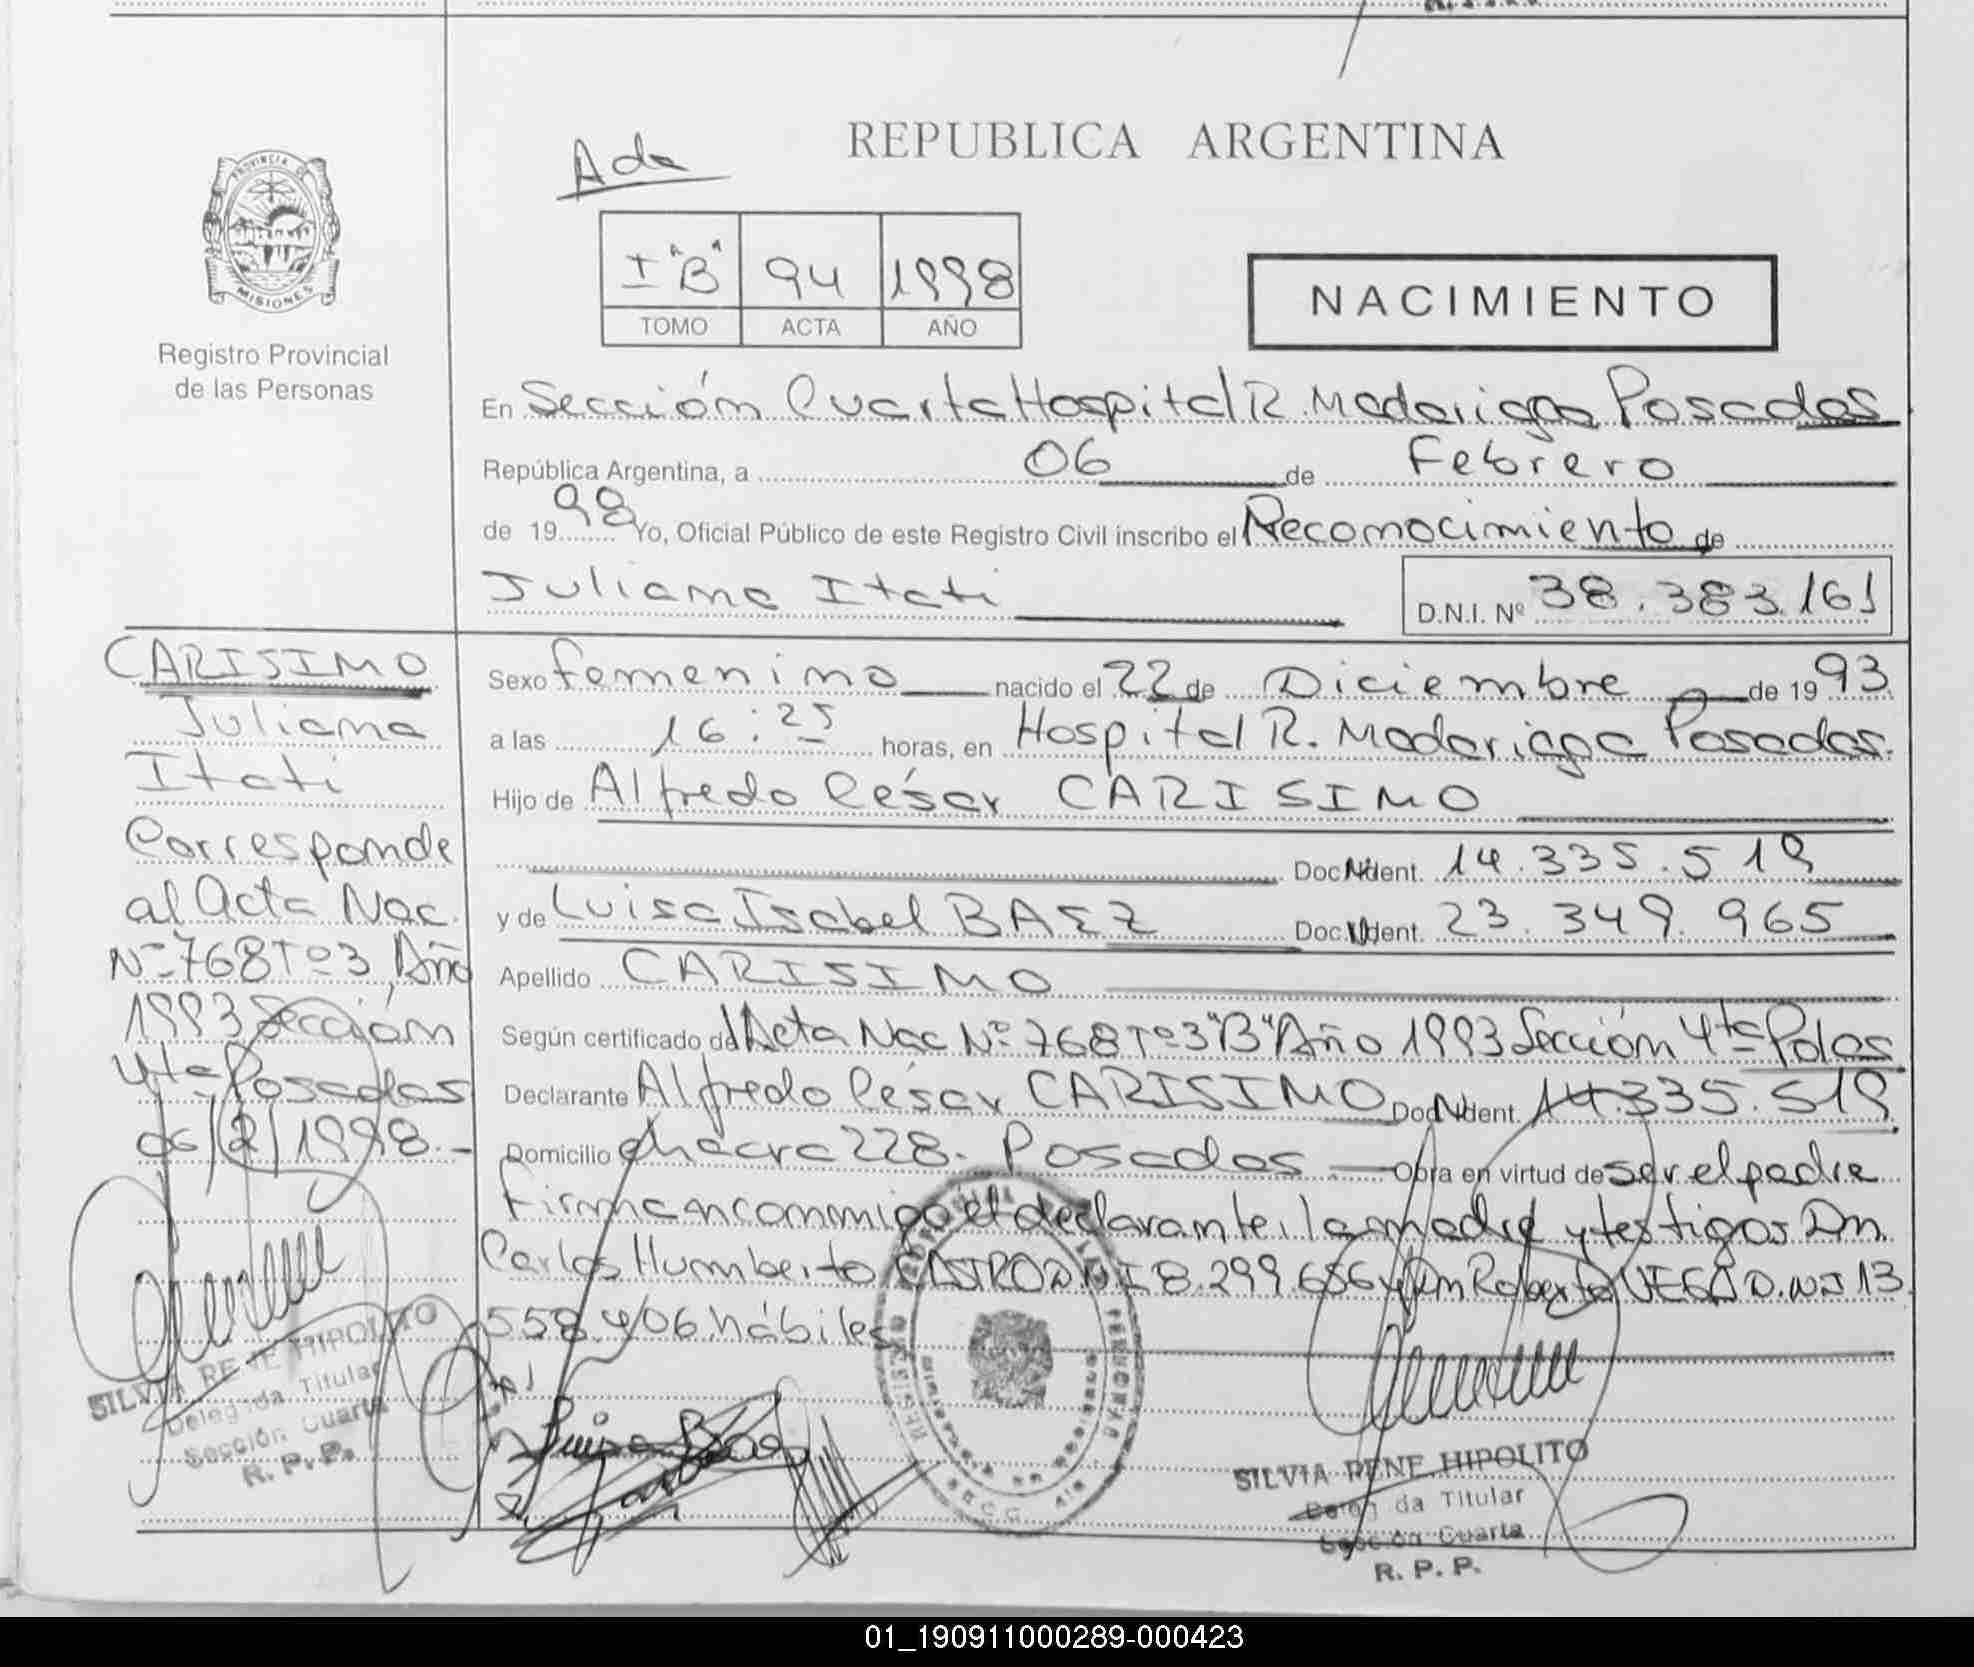 REPUBLICA ARGENTINA
PROVINCIA DE
MISIONES
Registro Provincial
de las Personas
I "B" 94 1998
TOMO ACTA AÑO
NACIMIENTO
En Sección Cuarta Hospital R. Madariaga Posadas
República Argentina, a 06 de Febrero
de 1998 Yo, Oficial Público de este Registro Civil inscribo el Reconocimiento de
Juliana Itati D.N.I. Nº 38.383.161
CARISIMO
Juliana
Itati
Corresponde
al Acta Nac.
Nº 768 Tº 3, Año
1993 Sección
4ta Posadas
06/2/1998.-
SILVIA RENE HIPOLITO
Delegada Titular
Sección Cuarta
R. P. P.
Sexo femenino nacido el 22 de Diciembre de 1993
a las 16:25 horas, en Hospital R. Madariaga Posadas.
Hijo de Alfredo César CARISIMO
Doc. Ident. 14.335.519
y de Luisa Isabel BAEZ Doc. Ident. 23.349.965
Apellido CARISIMO
Según certificado de Acta Nac Nº 768 Tº 3 "B" Año 1993 Sección 4ta Pdas
Declarante Alfredo César CARISIMO Doc. Ident. 14.335.519
Domicilio chacra 228. Posadas Obra en virtud de ser el padre
firman conmigo el declarante, la madre y testigos Dn.
Carlos Humberto CASTRO D.N.I 8.299.656 y Dn Roberto VEGA D.N.I 13
558.406 hábiles
Luisa Baez
SILVIA RENE HIPOLITO
Delegada Titular
Sección Cuarta
R. P. P.
01_190911000289-000423